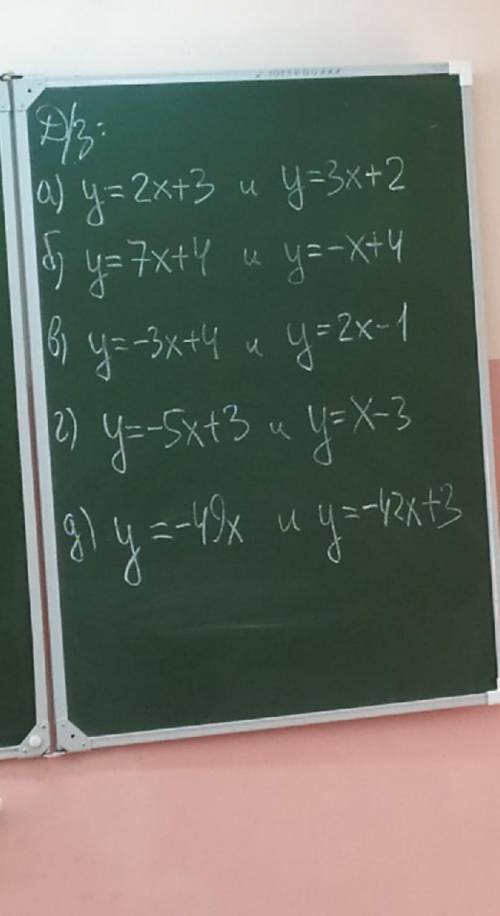 Д/з:
а) y=2x+3 и y=3x+2
б) y=7x+4 и y=-x+4
в) y=-3x+4 и y=2x-1
г) y=-5x+3 и y=x-3
д) y=-49x и y=-42x+3